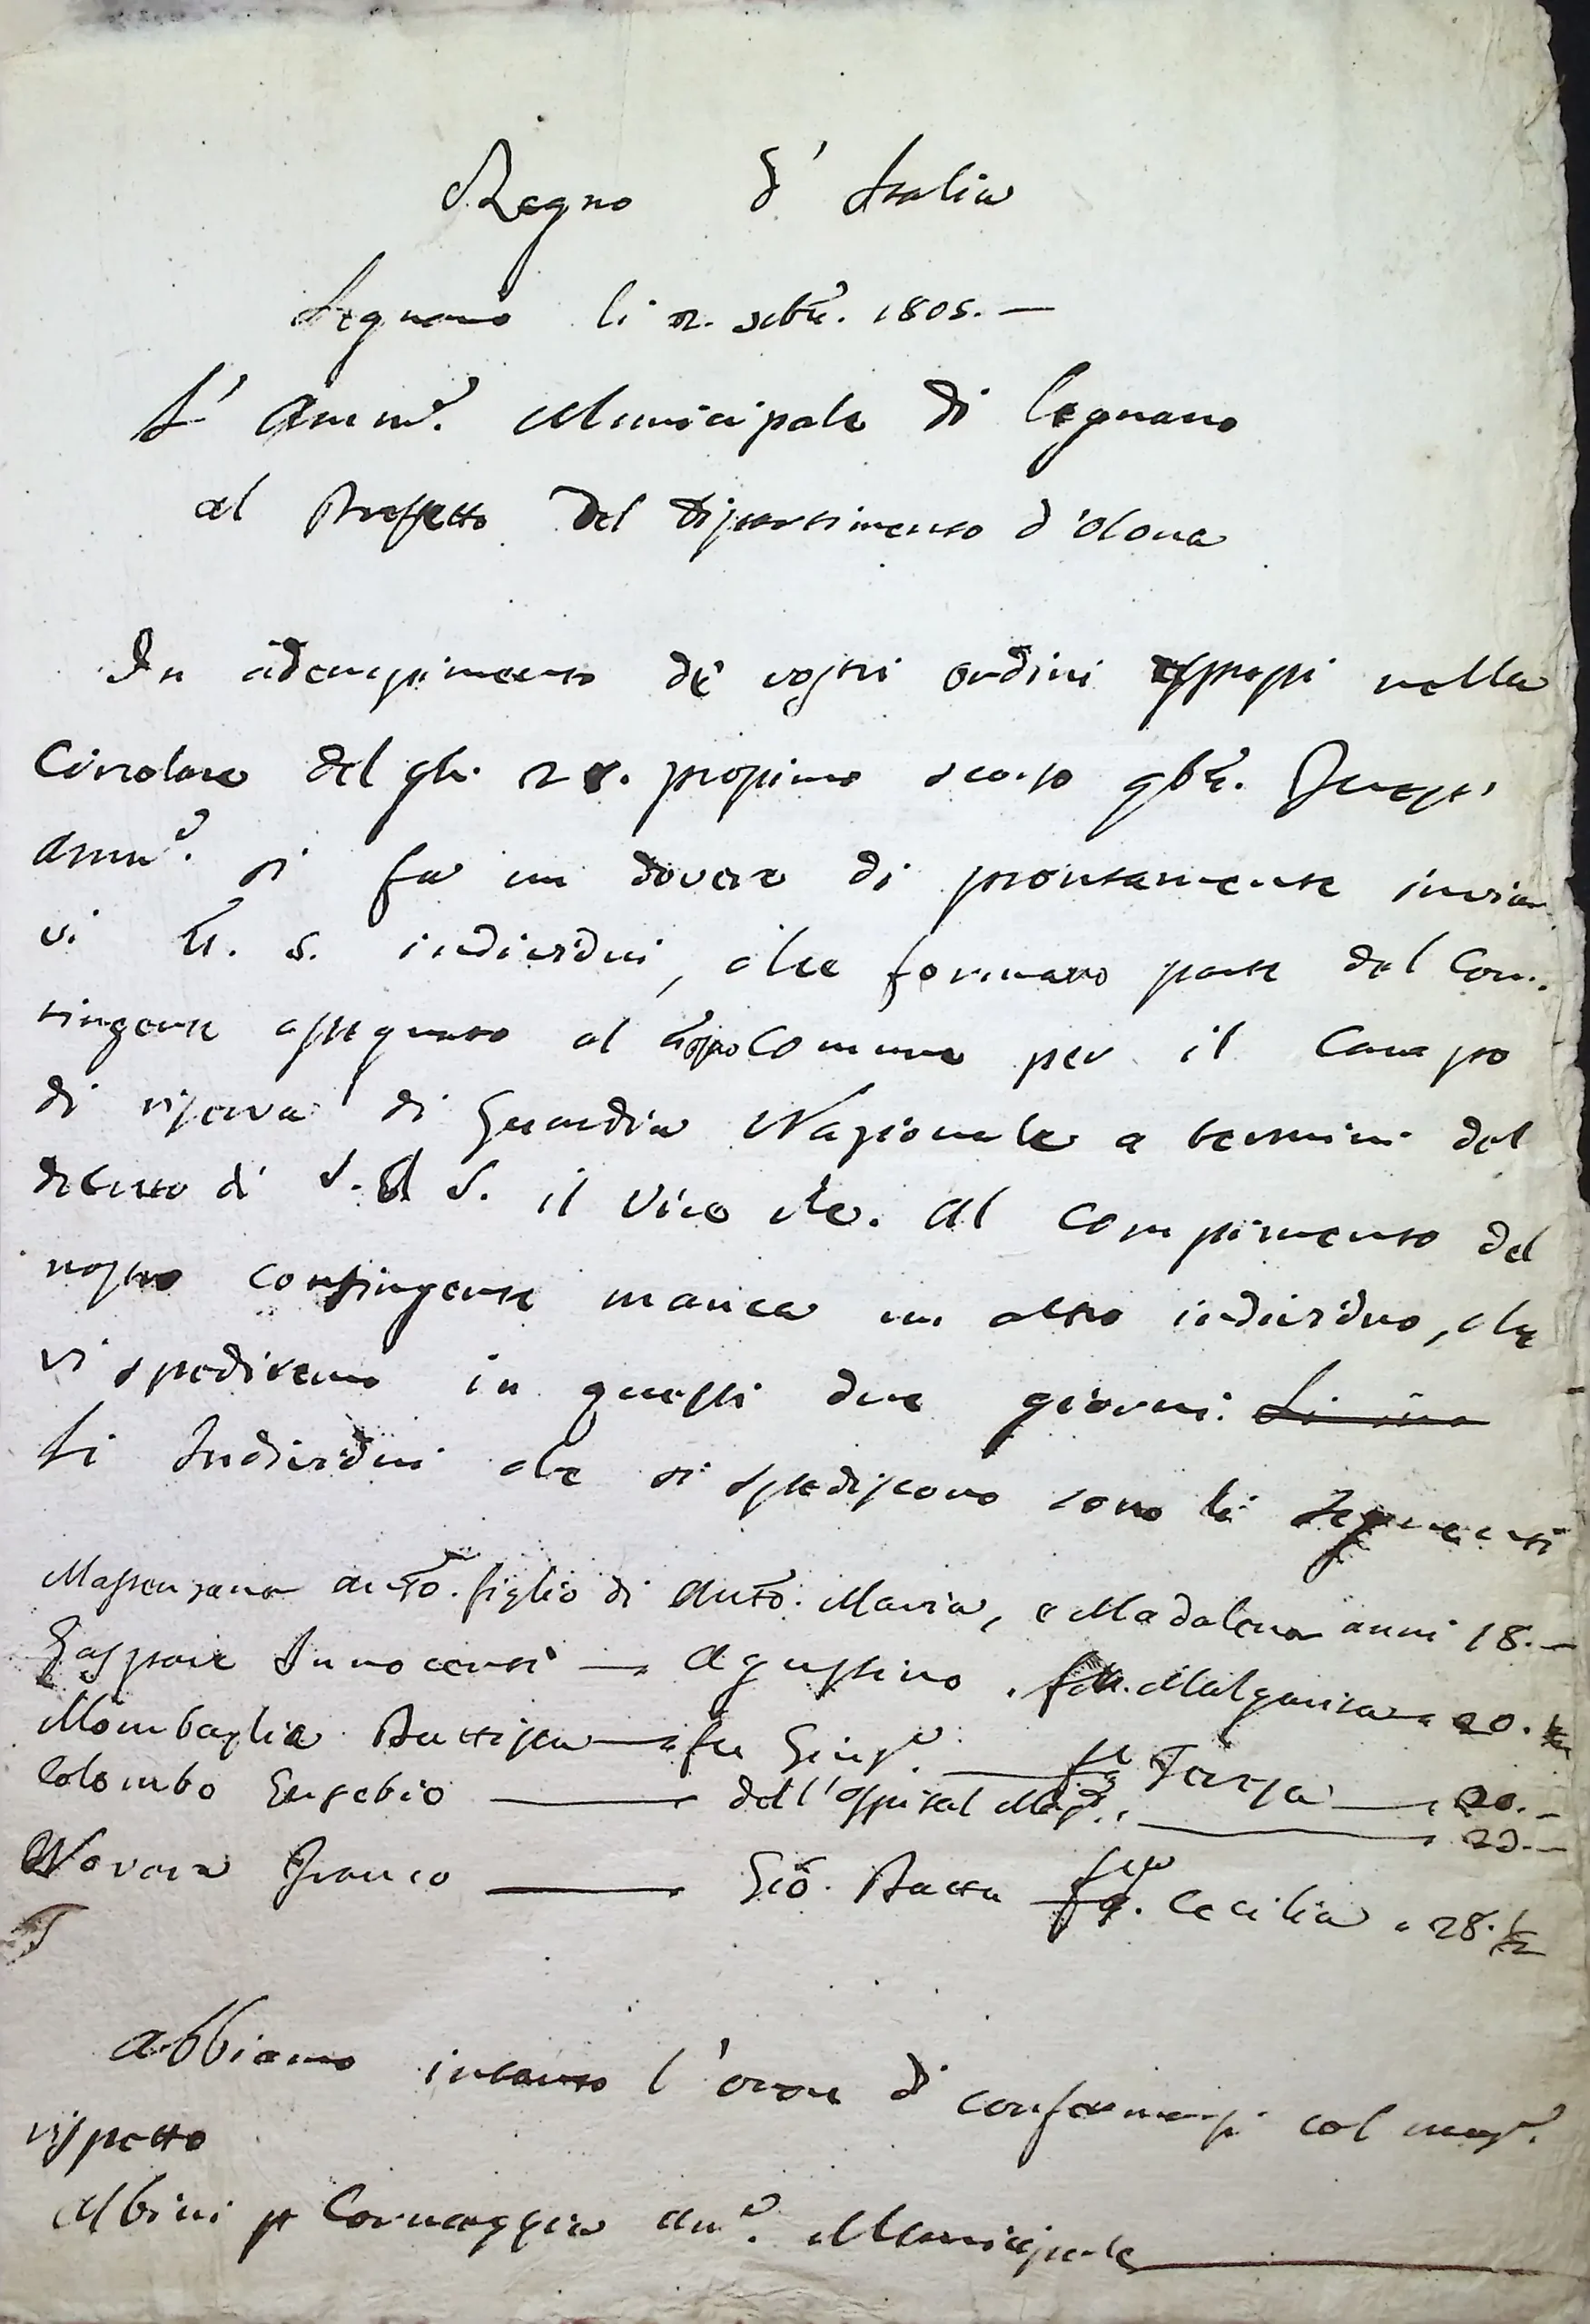 Regno d' Italia
Legnano li 2. xbre. 1805. —
L' Amm.e Municipale di Legnano
al Prefetto del Dipartimento d'Olona
In adempimento de' vostri ordini espressi nella
Circolare del gli. 28. prossimo scorso 9bre. Quest'
Amm.e si fa un dovere di prontamente inviar
vi N. 5. individui, che formano parte del Con.
tingente assegnato al nostro Comune per il Campo
di riserva di Guardia Nazionale a termini del
decreto di S. A. S. il Vice Re. Al compimento del
nostro contingente manca un altro individuo, che
vi spediremo in questi due giorni.
Li Individui che si spediscono sono li seguenti
Massenzana Anto. figlio di Anto. Maria, e Madalena anni 18. —
Gaspare Innocenti — Agostino. Malgarita 20.
Mombaglia Battista — fu Giusp.e — Teresa — 20. —
Colombo Eusebio — dell'Ospital Mag.e — 23. —
Novara Franco — Gio. Batta Cecilia 28.
Abbiamo intanto l'onore di confermarsi col mag.r
rispetto
Albini p Cornaggia Am.e Municipale